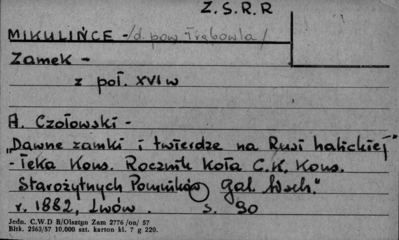 Z.S.R.R
MIKULIŃCE - /d. pow Trębowla/
Zamek -
z poł. XVI w
A. Czołowski -
„Dawne zamki i twierdze na Rusi halickiej"
- Teka Kons. Rocznik Koła C.K. Kons.
Starożytnych Pomników Gal. Wsch."
r. 1882, Lwów s. 90
Jedn. C.W.D B/Olsztyn Zam 2776 /on/ 57
Bitk. 2563/57 10.000 szt. karton kl. 7 g 220.